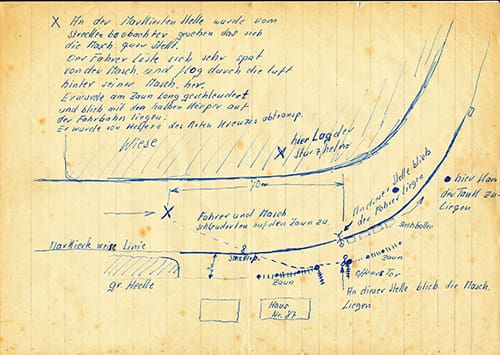 X An der Markierten Stelle wurde vom
Strecken beobachter gesehen das sich
die Masch. quer stellt.
Der Fahrer Löste sich sehr spät
von der Masch. und flog durch die luft
hinter seiner Masch. her.
Er wurde am Zaun Lang geschleudert
und blieb mit den halben Körper auf
der Fahrbahn liegen.
Er wurde von Helfern des Roten Kreuzes abtransp.
Wiese
X hier Lag der
Sturzhelm
70m
An dieser Stelle blieb
der Fahrer Liegen
hier kam
der Tank zu
Liegen
X
Fahrer und Masch
schleuderten auf den Zaun zu.
Strohballen
weise Linie
2m
Zaun
Zaun
offenes Tor
gr. Hecke
Haus
Nr. 87
An dieser Stelle blieb die Masch.
Liegen